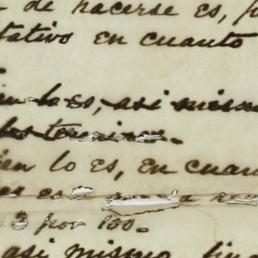 de hacerse es, p
tativo en cuanto
en lo es, asi mism
los terminos.
ien lo es, en cuan
3 por 100.
asi mismo